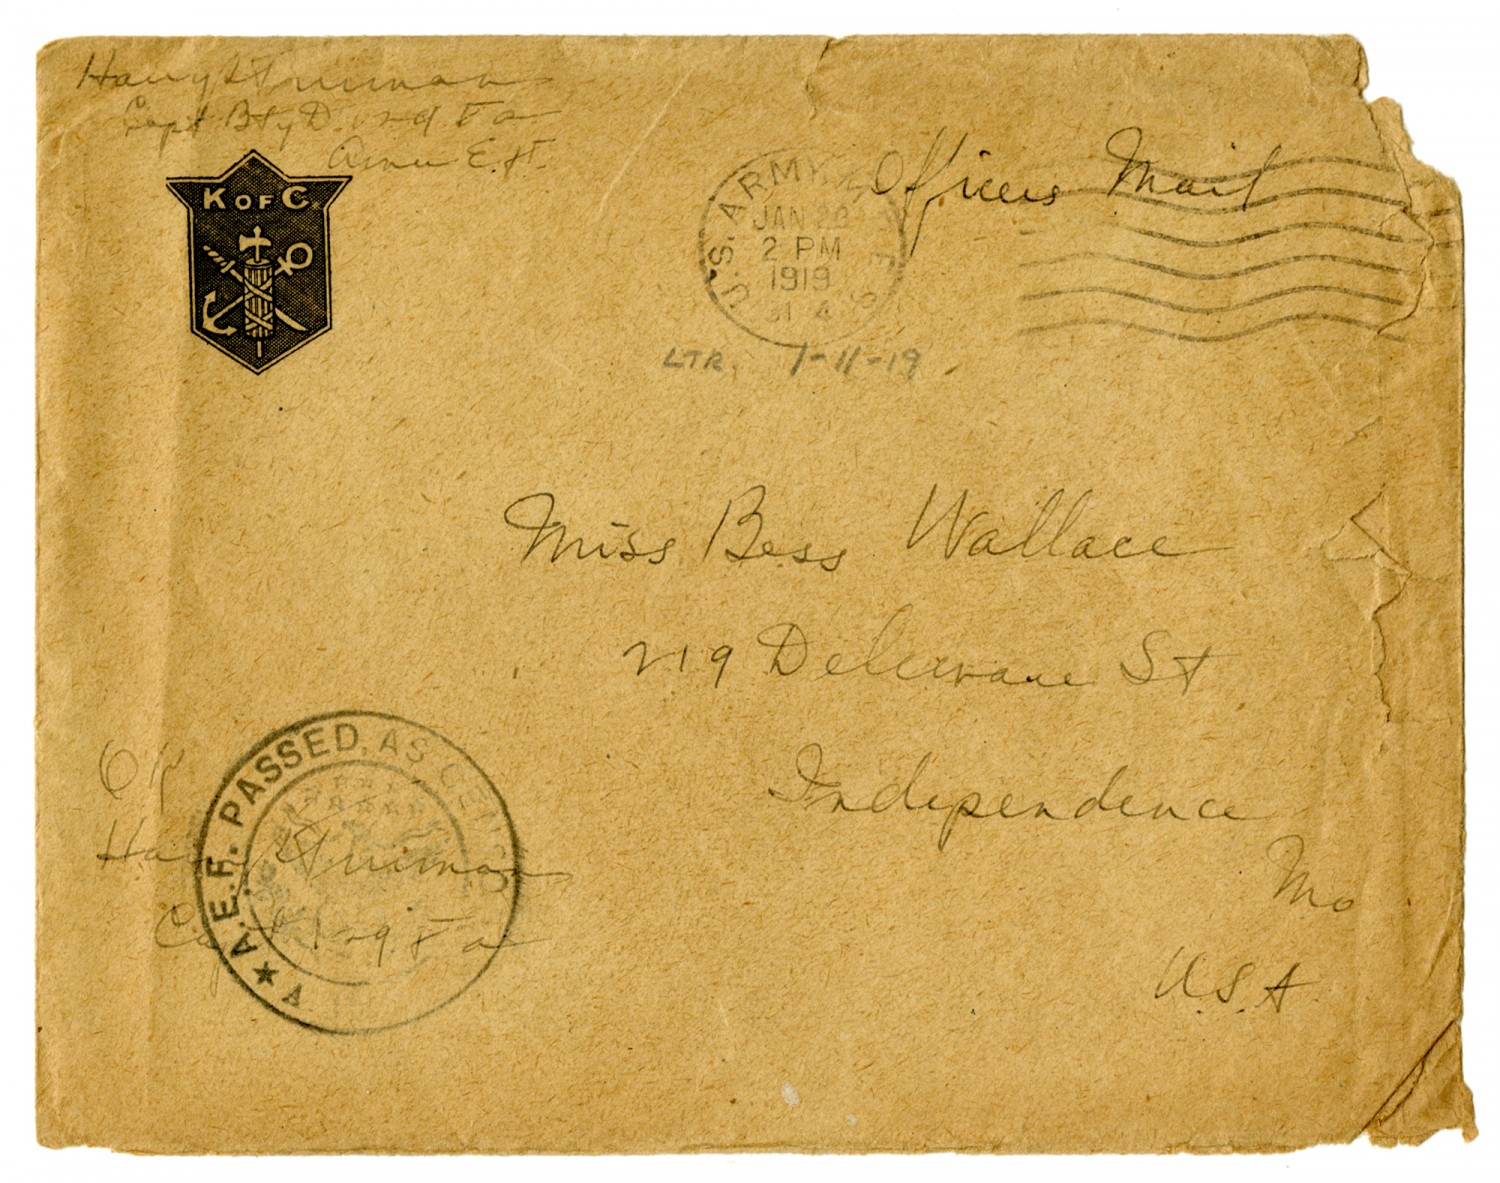 Harry S Truman
Capt Bty D. 129 F a
Amer E. F.
K OF C.
Officers Mail
U.S. ARMY
JAN 20
2 PM
1919
LTR. 1-11-19
Miss Bess Wallace
219 Delaware St
Independence
Mo
U.S.A.
OK
Harry S Truman
Capt 129 F a
A.E.F. PASSED, AS CENSORED